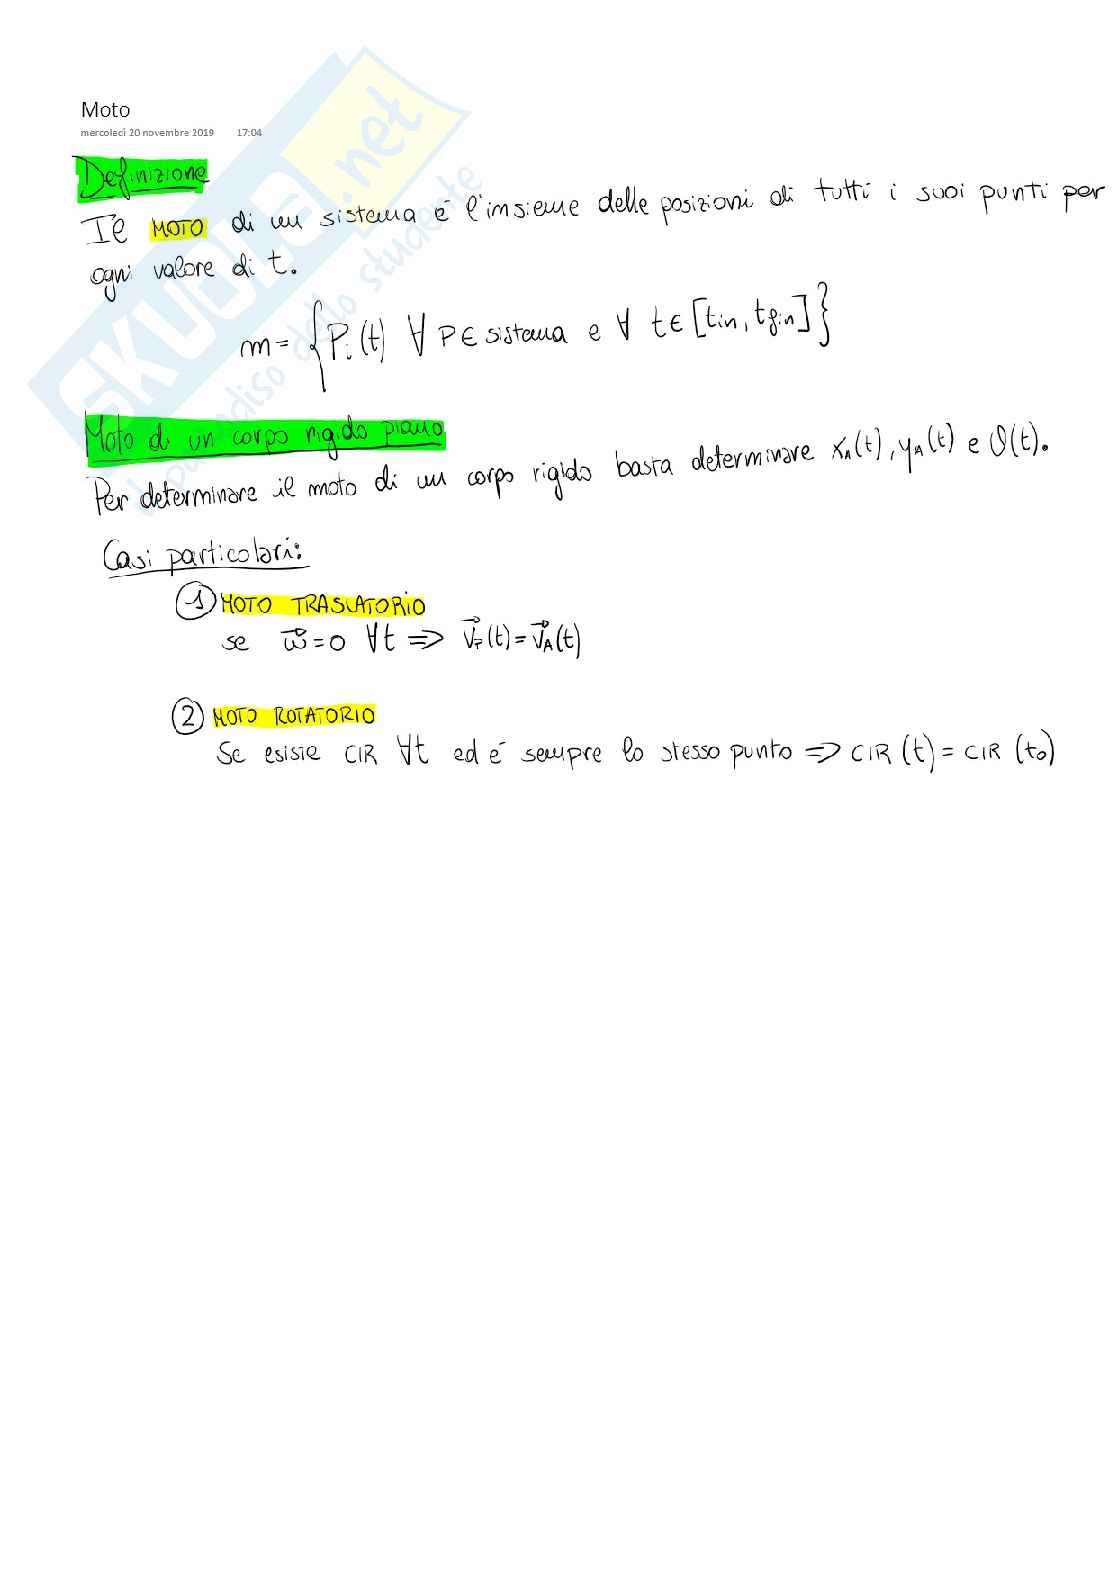 Moto
mercoledì 20 novembre 2019 17:04
Definizione
Il MOTO di un sistema é l'insieme delle posizioni di tutti i suoi punti per
ogni valore di t.
m = {Pᵢ(t) ∀ P∈ sistema e ∀ t∈ [tin, tfin]}
Moto di un corpo rigido piano
Per determinare il moto di un corpo rigido basta determinare xA(t), yA(t) e ϑ(t).
Casi particolari:
① MOTO TRASLATORIO
se ω⃗ = 0 ∀t ⇒ v⃗P(t) = v⃗A(t)
② MOTO ROTATORIO
Se esiste CIR ∀t ed é sempre lo stesso punto ⇒ CIR (t) = CIR (t₀)
SKUOLA.net
il paradiso dello studente